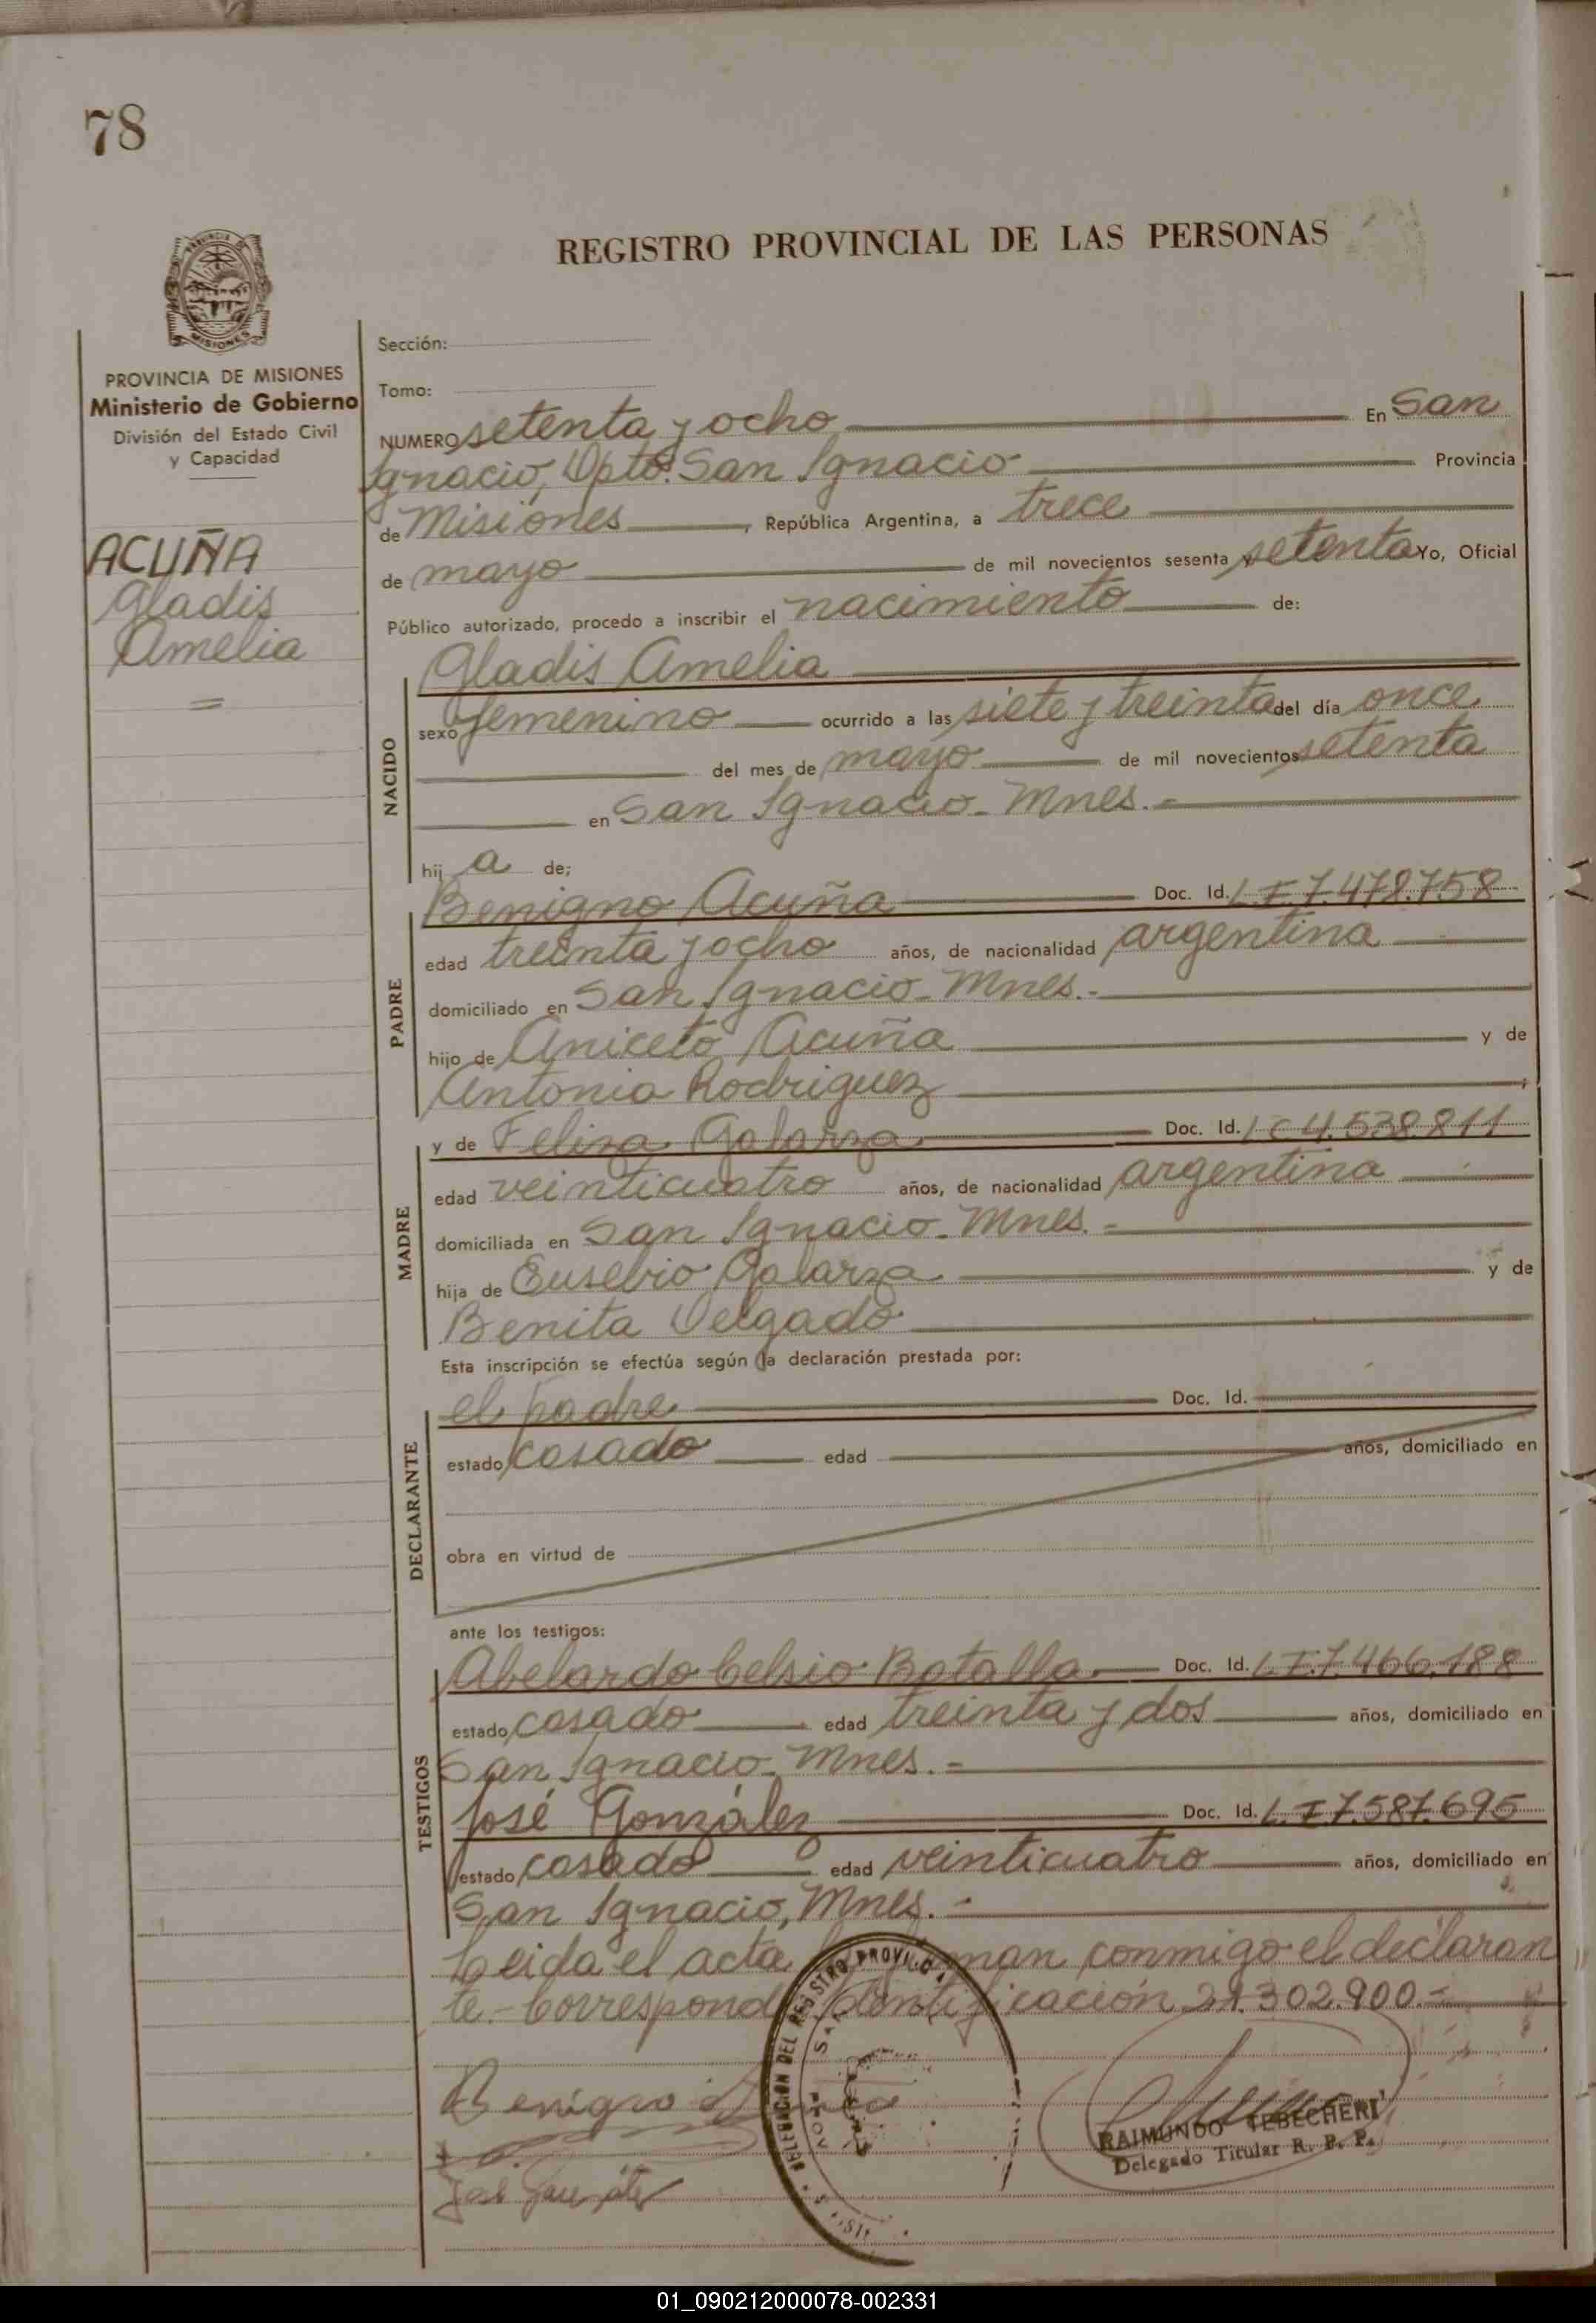 78
REGISTRO PROVINCIAL DE LAS PERSONAS
PROVINCIA DE MISIONES
Ministerio de Gobierno
División del Estado Civil
y Capacidad
ACUÑA
Gladis
Amelia
Sección:
Tomo:
NUMERO setenta y ocho En San
Ignacio, Dpto. San Ignacio Provincia
de Misiones, República Argentina, a trece
de mayo de mil novecientos sesenta y setenta Yo, Oficial
Público autorizado, procedo a inscribir el nacimiento de:
NACIDO
Gladis Amelia
sexo femenino ocurrido a las siete y treinta del día once
del mes de mayo de mil novecientos setenta
en San Ignacio - Mnes.-
hij a de;
PADRE
Benigno Acuña Doc. Id. L.E 7.472.758
edad treinta y ocho años, de nacionalidad argentina
domiciliado en San Ignacio - Mnes.-
hijo de Aniceto Acuña y de
Antonia Rodriguez
MADRE
y de Feliza Galarza Doc. Id. L C 4.538.811
edad veinticuatro años, de nacionalidad argentina
domiciliada en San Ignacio - Mnes.-
hija de Eusebio Galarza y de
Benita Delgado
Esta inscripción se efectúa según la declaración prestada por:
DECLARANTE
el padre Doc. Id.
estado casado edad años, domiciliado en
obra en virtud de
ante los testigos:
TESTIGOS
Abelardo Celsio Batalla Doc. Id. L.E. 7.466.188
estado casado edad treinta y dos años, domiciliado en
San Ignacio - Mnes.-
José González Doc. Id. L.E 7.587.695
estado casado edad veinticuatro años, domiciliado en
San Ignacio, Mnes.-
Leida el acta conmigo el declaran
te.- Corresponde 21.302.900.-
DELEGACION DEL REGISTRO PROVINCIAL
Benigno
RAIMUNDO TEBECHERI
Delegado Titular R. P. P.
01_090212000078-002331